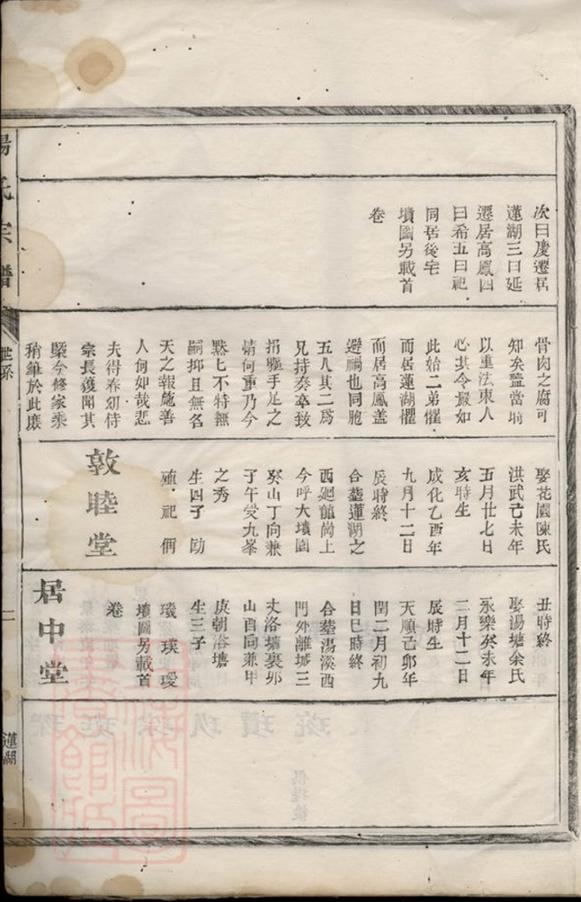 次曰慶遷居
蓮湖三曰延
遷居高鳳四
曰希五曰祀
同居後宅
墳圖另載首
卷
骨肉之腐可
知矣監當垧
以重法東人
心其令嚴如
此始二弟懼
而居蓮湖懼
而居高鳳蓋
避禍也同胞
五人其二爲
兄持奏卒致
捐軀手足之
情何重乃今
黙匕不特無
嗣抑且無名
天之報施善
人何如哉悲
夫得春初侍
宗長獲聞其
槩今修家乘
稍錐於此廉
娶花園陳氏
洪武己未年
五月廿七日
亥時生
成化乙酉年
九月十二日
辰時終
合塟蓮湖之
西廻龍崗上
今呼大墳園
癸山丁向兼
子午受九峯
之秀
生四子 勛
祀 侢
敦睦堂
丑時終
娶湯塘余氏
永樂癸未年
二月十二日
辰時生
天順己卯年
閏二月初九
日巳時終
合塟湯溪西
門外離城三
丈洛塘裏卯
山酉向兼甲
庚朝洛塘
生三子
璣 璞 璦
墳圖另載首
卷
居中堂
湯氏宗譜
世系
二
蓮湖